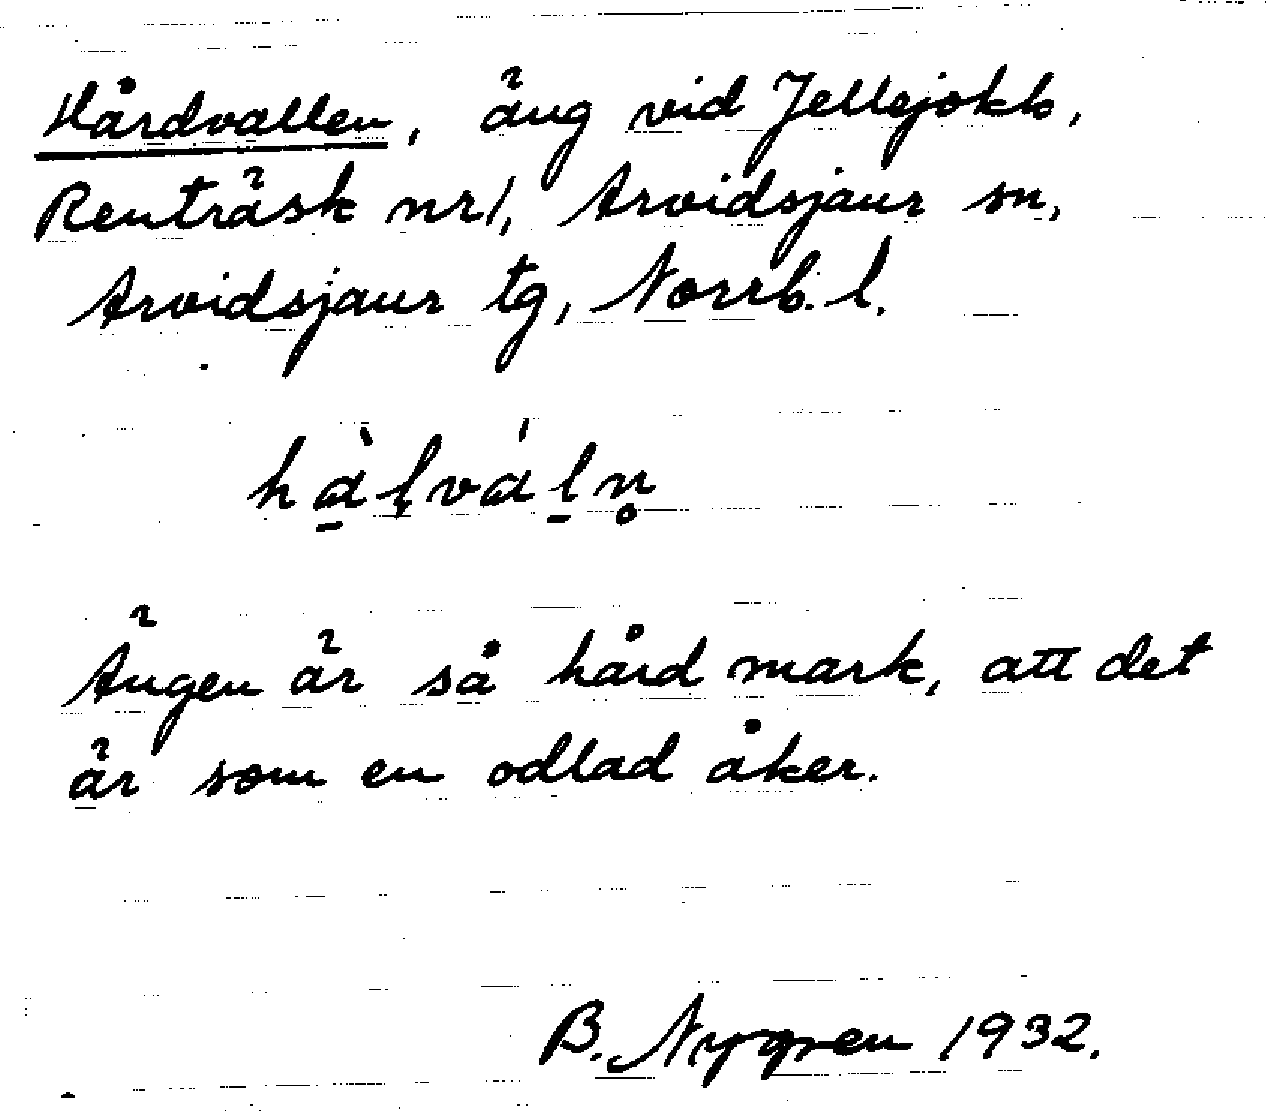 Hårdvallen, äng vid Jellejokk,
Renträsk nr 1, Arvidsjaur sn,
Arvidsjaur tg, Norrb. l.
hà̱ļváḻn̥
Ängen är så hård mark, att det
är som en odlad åker.
B. Nygren 1932.